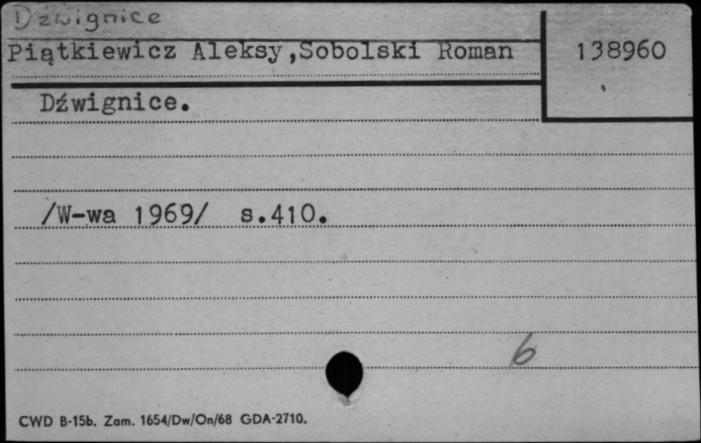 Dźwignice
Piątkiewicz Aleksy,Sobolski Roman
138960
Dźwignice.
/W-wa 1969/ s.410.
6
CWD B-15b. Zam. 1654/Dw/On/68 GDA-2710.